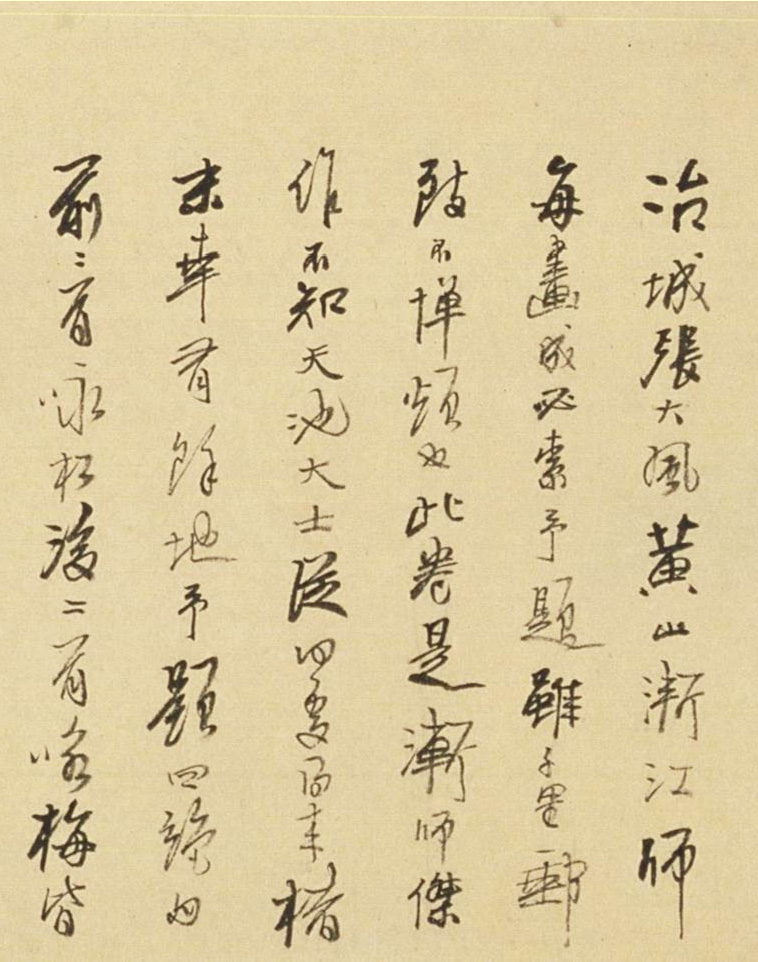 冶城張大風黃山漸江師
每畫成必索予題雖千里郵
致不憚煩也此卷是漸師傑
作不知天池大士從何處得來楮
末幸有餘地予題四絕句
前二首咏松後二首咏梅皆